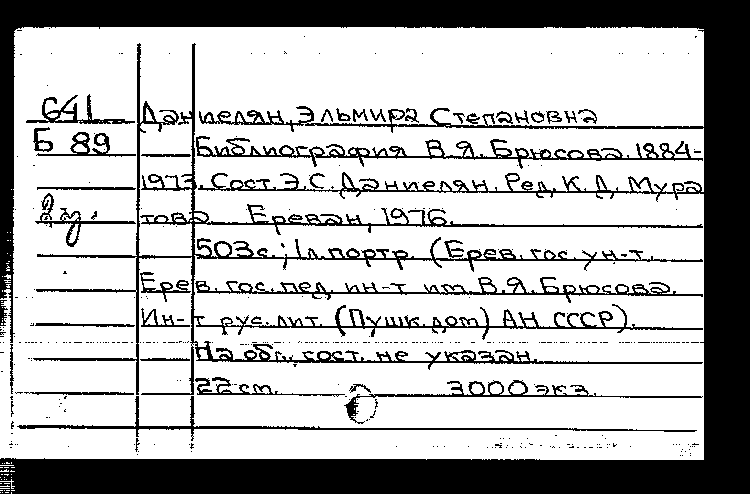 641 Даниелян, Эльмира Степановна
Б 89 Библиография В.Я. Брюсова. 1884-
1973. Сост. Э.С. Даниелян. Ред. К.Д. Мура
това. Ереван, 1976.
503 с.; 1 л. портр. (Ерев. гос. ун-т.
Ерев. гос. пед. ин-т им. В.Я. Брюсова.
Ин-т рус. лит. (Пушк. дом) АН СССР).
На обл. сост. не указан.
22 см. 3000 экз.